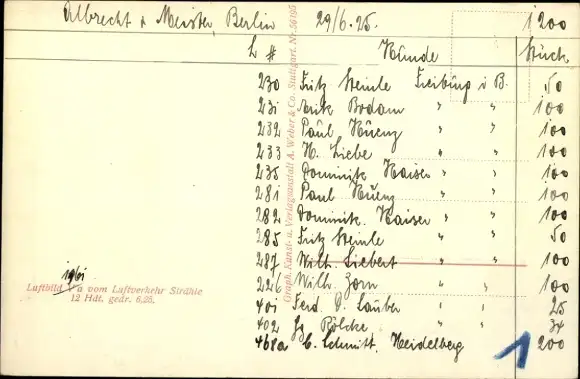 Albrecht & Meister, Berlin 29/6.25. 1200
L # Kunde Stück
230 Fritz Steinle Freiburg i B. 50
231 Bodam " " 100
232 Paul Kuenz " " 100
233 H. Liebe " " 100
235 Dominik Kaiser " " 100
281 Paul Kuenz " " 100
282 Dominik. Kaiser " " 100
285 Fritz Steinle " " 50
287 Wilh. Liebert " " 100
226 Wilh. Zorn " " 100
401 Ferd. Lauber " " 25
402 Gg. Rölcke " " 34
468a C. Schmitt. Heidelberg 200
1
1961
Luftbild a vom Luftverkehr Strähle
12 Hdt. gedr. 6.25.
Graph. Kunst- u. Verlagsanstalt A. Weber & Co. Stuttgart. Nr. 5605